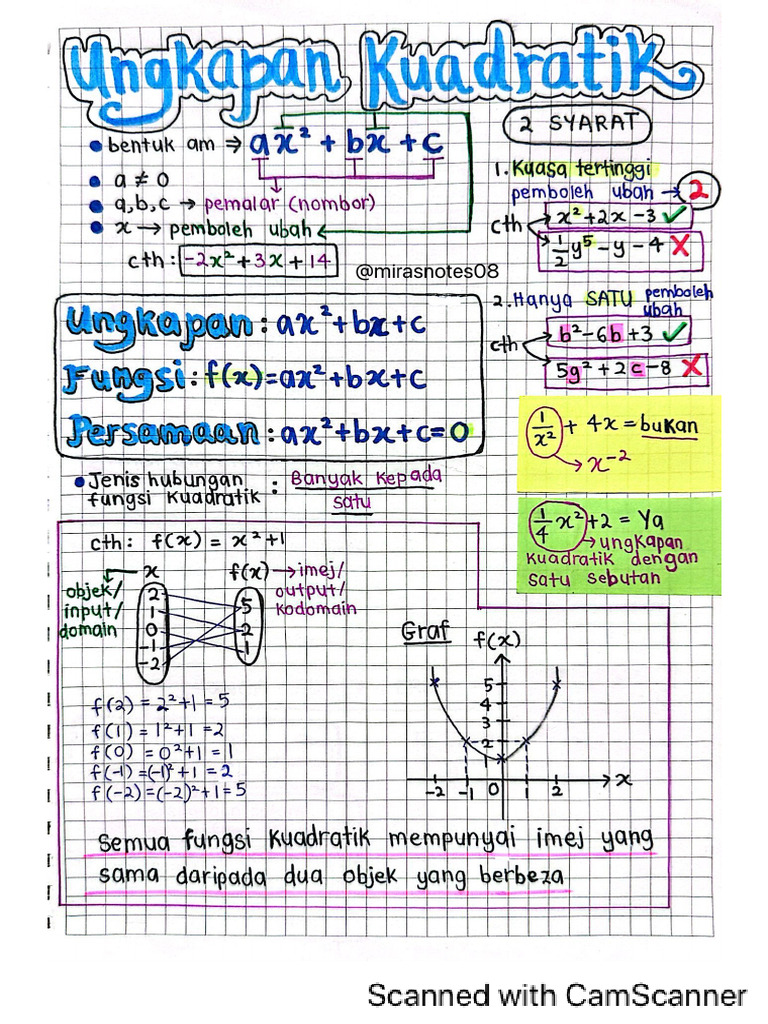 Ungkapan Kuadratik
• bentuk am → ax² + bx + c
• a ≠ 0
• a,b,c → pemalar (nombor)
• x → pemboleh ubah
cth : -2x² + 3x + 14
@mirasnotes08
2 SYARAT
1. Kuasa tertinggi
pemboleh ubah → 2
cth
x² + 2x - 3 ✓
1/2 y⁵ - y - 4 ✗
2. Hanya SATU pemboleh
ubah
cth
b² - 6b + 3 ✓
5g² + 2c - 8 ✗
Ungkapan : ax² + bx + c
Fungsi : f(x) = ax² + bx + c
Persamaan : ax² + bx + c = 0
1/x² + 4x = bukan
→ x⁻²
1/4 x² + 2 = Ya
→ ungkapan
kuadratik dengan
satu sebutan
• Jenis hubungan
fungsi kuadratik : Banyak kepada
satu
cth : f(x) = x² + 1
x
f(x) → imej/
output/
kodomain
objek/
input/
domain
2
1
0
-1
-2
5
2
1
f(2) = 2² + 1 = 5
f(1) = 1² + 1 = 2
f(0) = 0² + 1 = 1
f(-1) = (-1)² + 1 = 2
f(-2) = (-2)² + 1 = 5
Graf
f(x)
5
4
3
2
1
-2 -1 0 1 2
x
Semua fungsi kuadratik mempunyai imej yang
sama daripada dua objek yang berbeza
Scanned with CamScanner